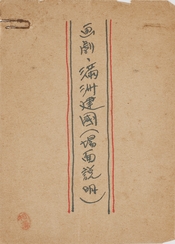 画劇・滿洲建國(場面説明)